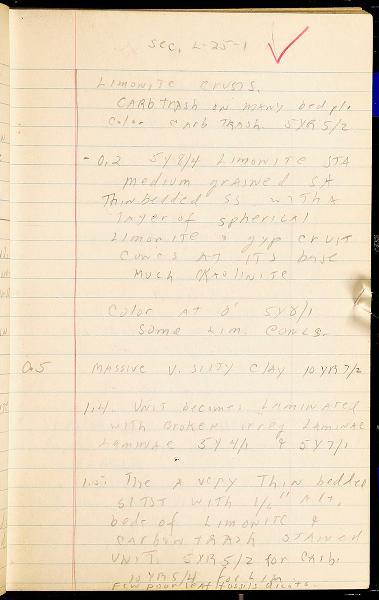 Sec. L-25-1
Limonite crusts.
Carb trash on many bed pls
Color carb trash. 5YR5/2
- 0.2 5Y8/4 Limonite STA
medium grained SA
Thin bedded SS with a
layer of spherical
Limonite & gyp crust
concs at its base
Much Kaolinite
Color at 0' 5Y8/1
Some Lim. Concs.
0.5 Massive v. silty clay 10YR7/2
1.4. Unit becomes Laminated
with broken irreg Laminae
Laminae 5Y4/1 & 5Y7/1
The a very Thin bedded
SLTST with 1/2" Alt.
beds of Limonite &
Carbon trash stained
Unit. 5YR5/2 for carb.
10YR5/4 for Lim
Few poor leaf fossils dicots.